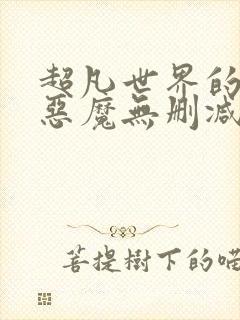 超凡世界的
惡魔無刪減
菩提樹下的喵